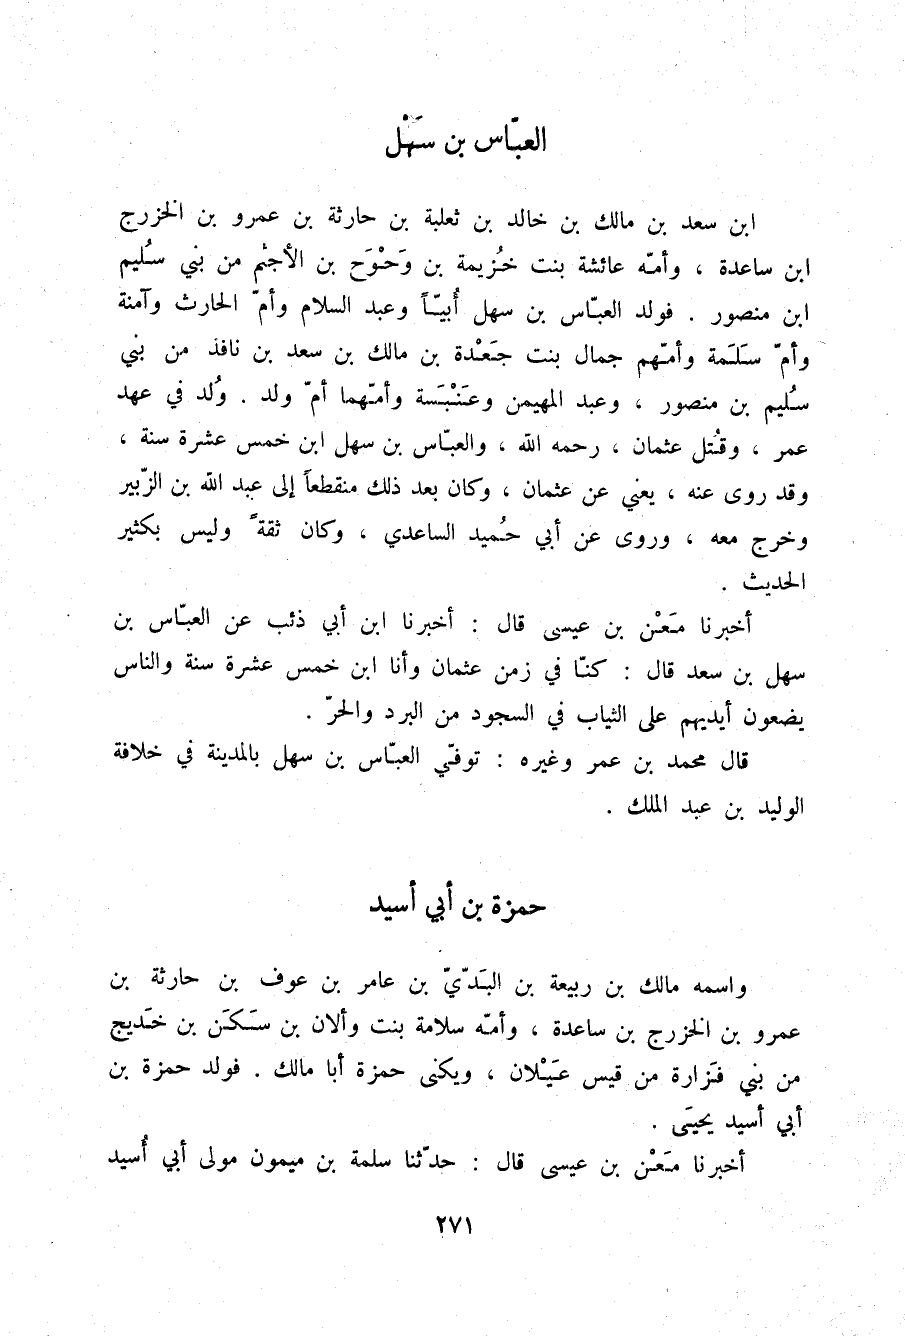 العبّاس بن سَهْل
ابن سعد بن مالك بن خالد بن ثعلبة بن حارثة بن عمرو بن الخزرج
ابن ساعدة ، وأمّه عائشة بنت خُزيمة بن وَحْوَح بن الأجثم من بني سُليم
ابن منصور . فولد العبّاس بن سهل أُبيّاً وعبد السلام وأمّ الحارث وآمنة
وأمّ سَلَمة وأمّهم جمال بنت جَعْدة بن مالك بن سعد بن نافذ من بني
سُليم بن منصور ، وعبد المهيمن وعَنْبَسة وأمّهما أمّ ولد . وُلد في عهد
عمر ، وقُتل عثمان ، رحمه الله ، والعبّاس بن سهل ابن خمس عشرة سنة ،
وقد روى عنه ، يعني عن عثمان ، وكان بعد ذلك منقطعاً إلى عبد الله بن الزّبير
وخرج معه ، وروى عن أبي حُميد الساعدي ، وكان ثقةً وليس بكثير
الحديث .
أخبرنا مَعْن بن عيسى قال : أخبرنا ابن أبي ذئب عن العبّاس بن
سهل بن سعد قال : كنّا في زمن عثمان وأنا ابن خمس عشرة سنة والناس
يضعون أيديهم على الثياب في السجود من البرد والحرّ .
قال محمد بن عمر وغيره : توفّي العبّاس بن سهل بالمدينة في خلافة
الوليد بن عبد الملك .
حمزة بن أبي أسيد
واسمه مالك بن ربيعة بن البَدّيّ بن عامر بن عوف بن حارثة بن
عمرو بن الخزرج بن ساعدة ، وأمّه سلامة بنت وألان بن سَكَن بن خَديج
من بني فَزارة من قيس عَيْلان ، ويكنى حمزة أبا مالك . فولد حمزة بن
أبي أسيد يحيَى .
أخبرنا مَعْن بن عيسى قال : حدّثنا سلمة بن ميمون مولى أبي أُسيد
٢٧١